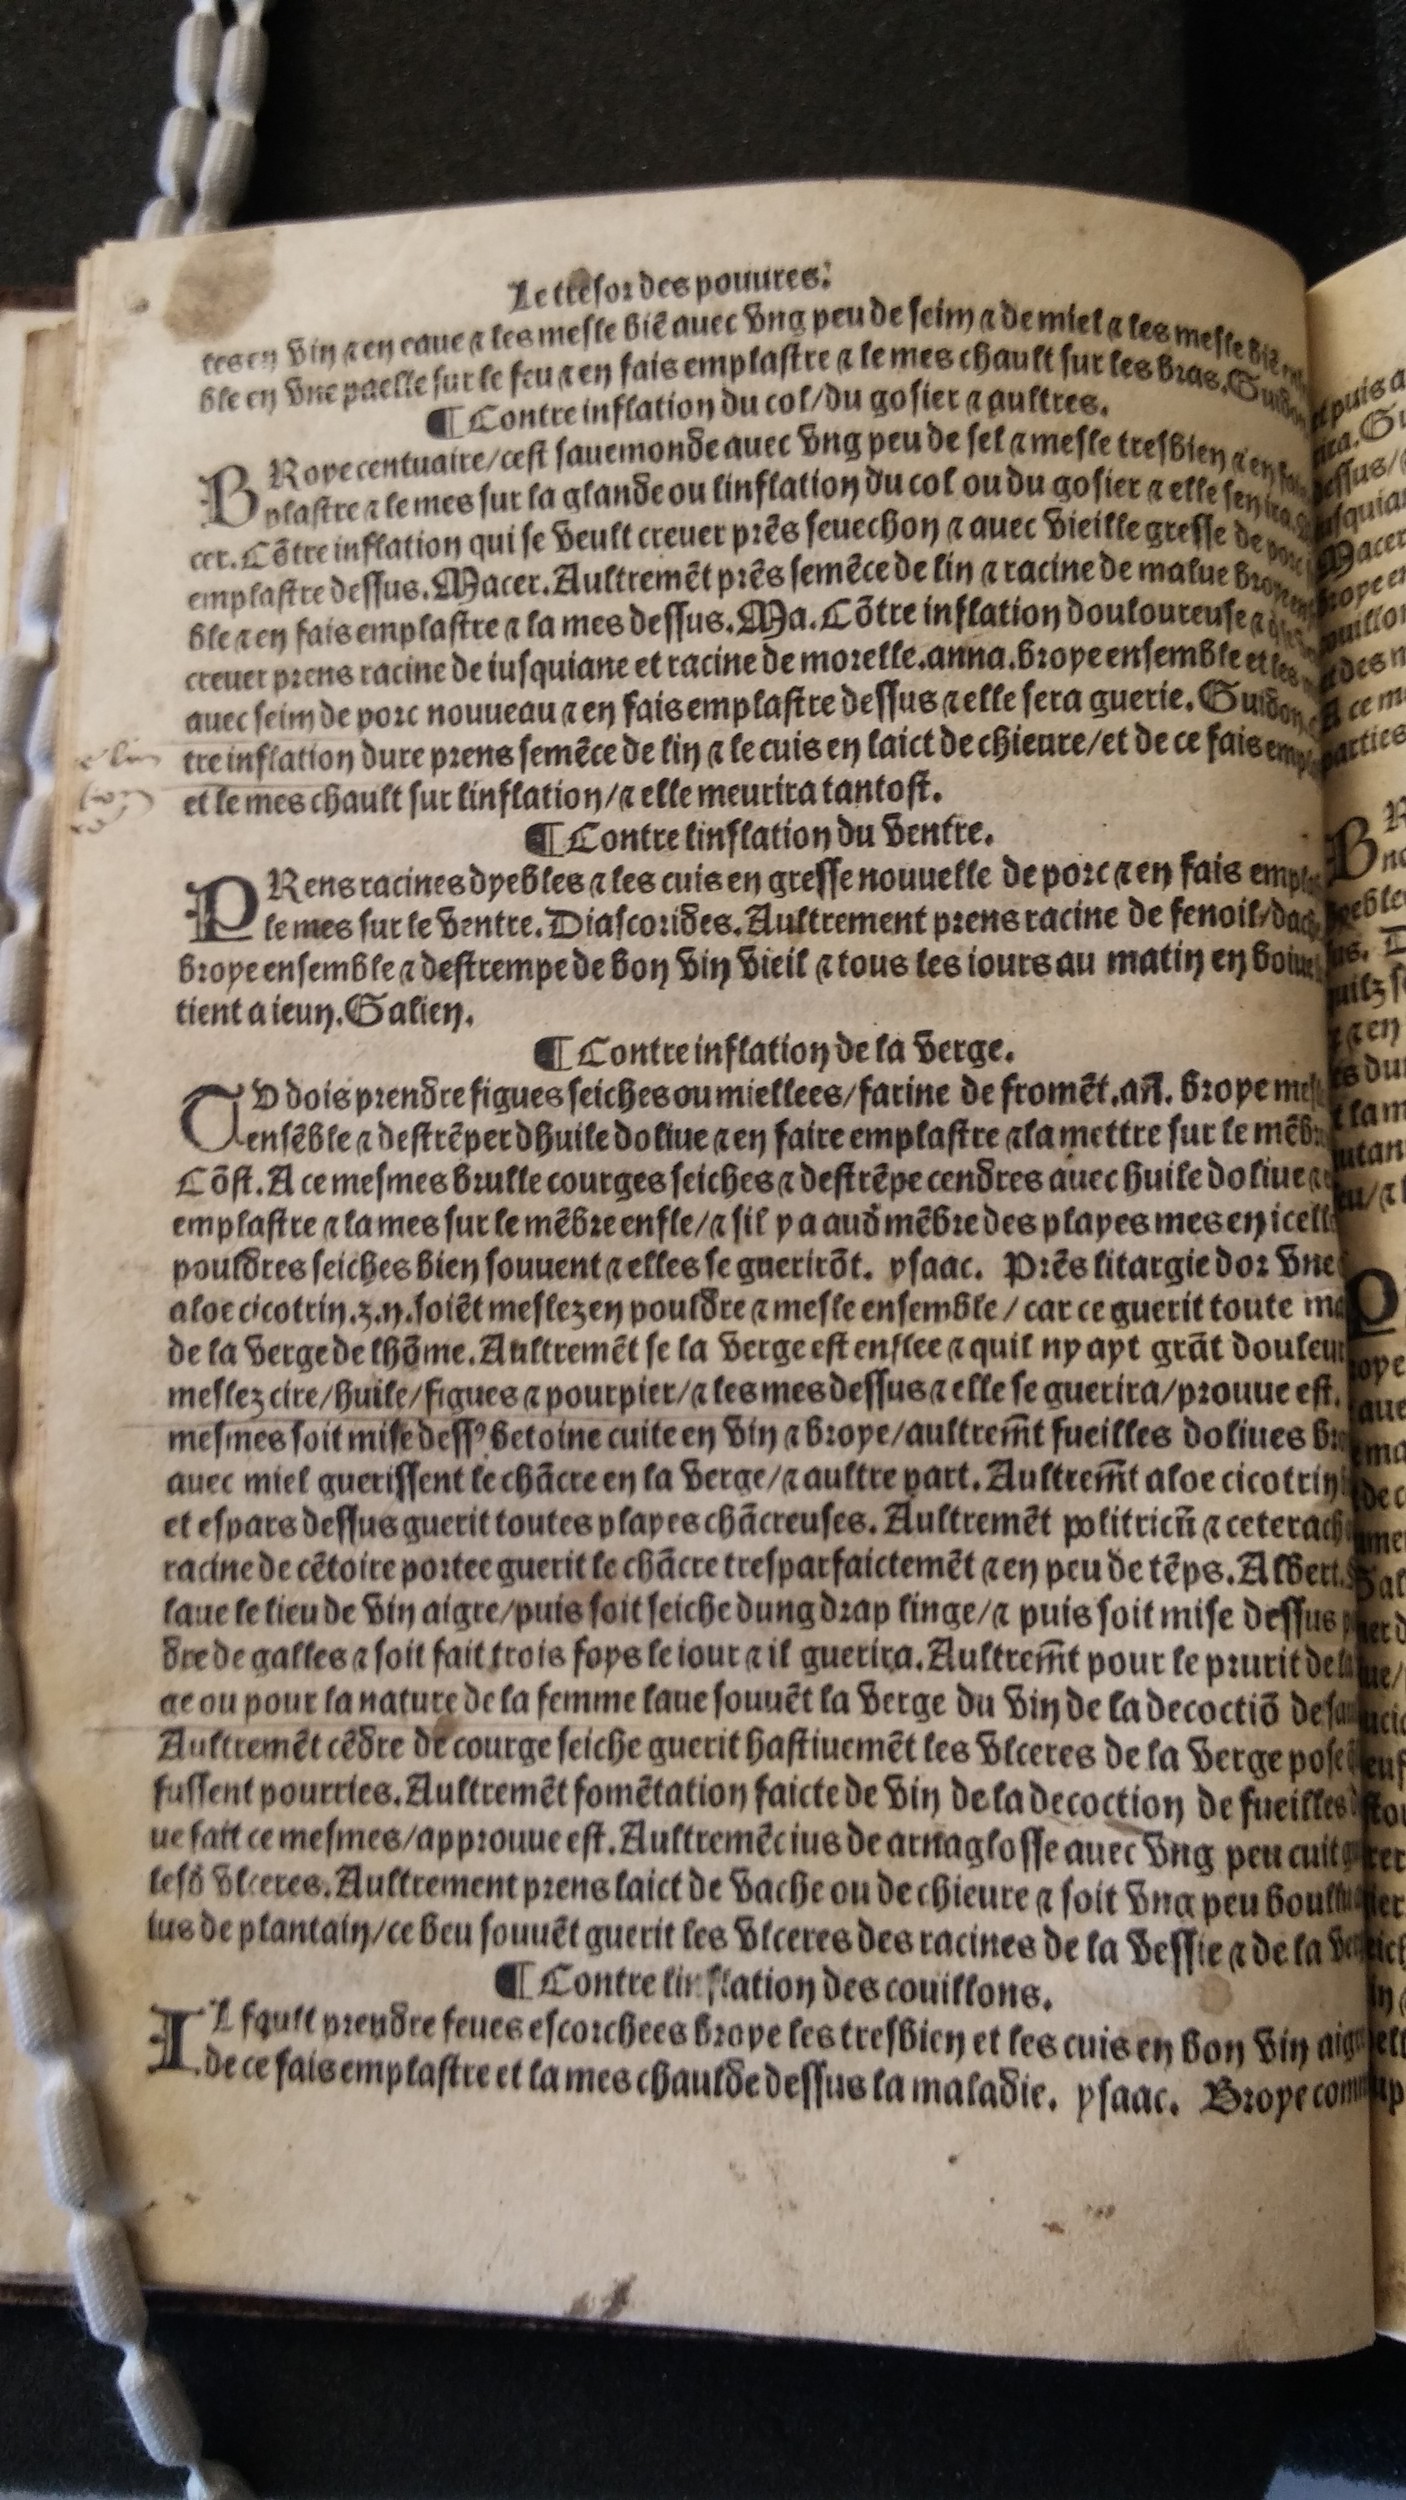 Le tresor des pouures.
tes en vin ⁊ en eaue ⁊ les mesle biē auec vng peu de seim ⁊ de miel ⁊ les mesle
ble en vne paelle sur le feu ⁊ en fais emplastre ⁊ le mes chault sur les bras.
¶ Contre inflation du col/du gosier ⁊ aultres.
BRoye centuaire/cest sauemonde auec vng peu de sel ⁊ mesle tresbien ⁊ en
plastre ⁊ le mes sur la glande ou linflation du col ou du gosier ⁊ elle sen ira.
cer. Cōtre inflation qui se veult creuer prēs seuechon ⁊ auec vieille gresse de porc
emplastre dessus. Macer. Aultremēt prēs semēce de lin ⁊ racine de malue
ble ⁊ en fais emplastre ⁊ la mes dessus. Ma. Cōtre inflation douloureuse ⁊
creuer prens racine de iusquiane et racine de morelle. anna. broye ensemble et les
auec seim de porc nouueau ⁊ en fais emplastre dessus ⁊ elle sera guerie. Guidon.
tre inflation dure prens semēce de lin ⁊ le cuis en laict de chieure/et de ce fais
et le mes chault sur linflation/⁊ elle meurira tantost.
¶ Contre linflation du ventre.
PRens racines dyebles ⁊ les cuis en gresse nouuelle de porc ⁊ en fais
le mes sur le ventre. Diascorides. Aultrement prens racine de fenoil/
broye ensemble ⁊ destrempe de bon vin vieil ⁊ tous les iours au matin en
tient a ieun. Galien.
¶ Contre inflation de la verge.
TV dois prendre figues seiches ou miellees/farine de fromēt. añ. broye
ensēble ⁊ destrēper dhuile doliue ⁊ en faire emplastre ⁊ la mettre sur le
Cōst. A ce mesmes brulle courges seiches ⁊ destrēpe cendres auec huile doliue
emplastre ⁊ la mes sur le mēbre enfle/⁊ sil y a audͤ mēbre des playes mes en
pouldres seiches bien souuent ⁊ elles se guerirōt. ysaac. Prēs litargie dor vne
aloe cicotrin. ʒ. ij. soiēt meslez en pouldre ⁊ mesle ensemble / car ce guerit toute
de la verge de lhōme. Aultremēt se la verge est enflee ⁊ quil ny ayt grāt douleur
meslez cire/huile/figues ⁊ pourpier/⁊ les mes dessus ⁊ elle se guerira/prouue est.
mesmes soit mise dessꝰ betoine cuite en vin ⁊ broye/aultrem̄t fueilles doliues
auec miel guerissent le chācre en la verge/⁊ aultre part. Aultrem̄t aloe cicotrin
et espars dessus guerit toutes playes chācreuses. Aultremēt politricū ⁊ ceterach
racine de cētoire portee guerit le chācre tresparfaictemēt ⁊ en peu de tēps. Albert.
laue le lieu de vin aigre/puis soit seiche dung drap linge/⁊ puis soit mise dessus
dre de galles ⁊ soit fait trois foys le iour ⁊ il guerira. Aultrem̄t pour le prurit de
ge ou pour la nature de la femme laue souuēt la verge du vin de la decoctiō de
Aultremēt cēdre de courge seiche guerit hastiuemēt les vlceres de la verge
fussent pourries. Aultremēt fomētation faicte de vin de la decoction de fueilles
ue fait ce mesmes/approuue est. Aultremēt ius de arnaglosse auec vng peu cuit
lesdͤ vlceres. Aultrement prens laict de vache ou de chieure ⁊ soit vng peu
ius de plantain/ce beu souuēt guerit les vlceres des racines de la vessie ⁊ de la
¶ Contre linflation des couillons.
IL fault prendre feues escorchees broye les tresbien et les cuis en bon vin
de ce fais emplastre et la mes chaulde dessus la maladie. ysaac. Broye